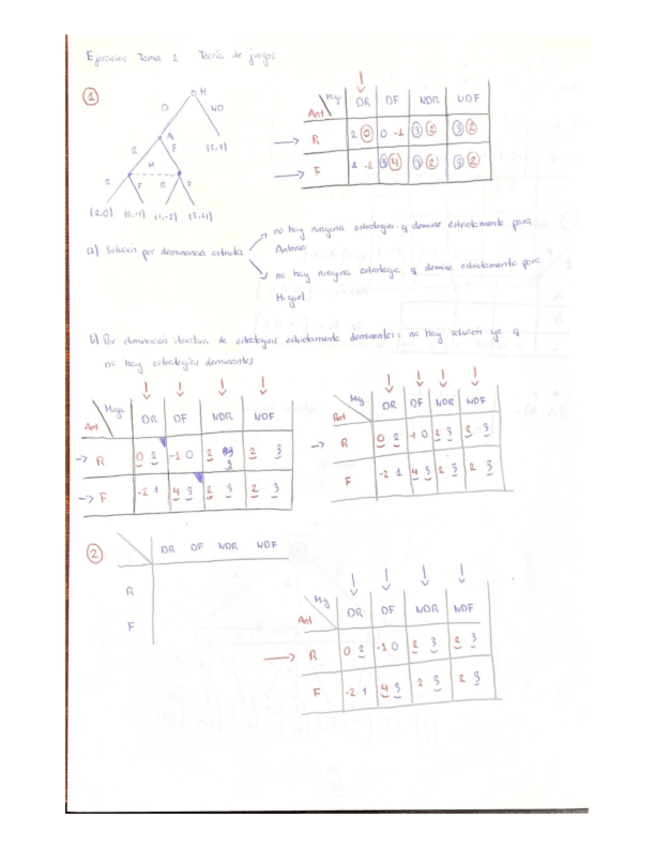 Ejercicios Tema 2 Teoría de juegos
1
M
D ND
A
R F (2,3)
M
R F R F
(2,0) (0,-1) (1,-2) (3,4)
Ant Mig DR DF NDR NDF
R 2 0 0 -1 3 2 3 2
F 1 -2 3 4 3 2 3 2
a) Solución por dominancia estricta
no hay ninguna estrategia q domine estrictamente para
Antonio
no hay ninguna estrategia q domine estrictamente para
Miguel
b) Por eliminación iterativa de estrategias estrictamente dominantes: no hay solución ya q
no hay estrategias dominantes
Ant Migu DR DF NDR NDF
R 0 2 -1 0 2 3 2 3
F -2 1 4 3 2 3 2 3
Ant Mig DR DF NDR NDF
R 0 2 -1 0 2 3 2 3
F -2 1 4 3 2 3 2 3
2
DR DF NDR NDF
R
F
Ant Mig DR DF NDR NDF
R 0 2 -1 0 2 3 2 3
F -2 1 4 3 2 3 2 3